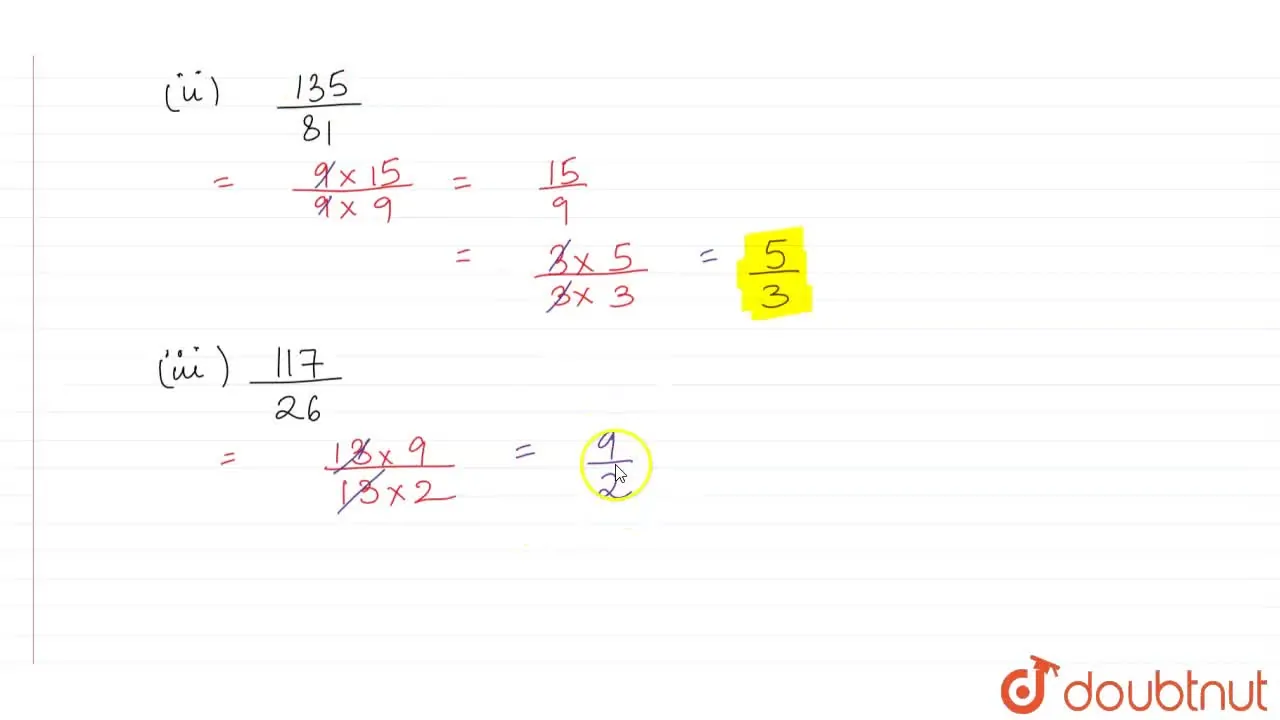 (ii) 135/81
= 9 × 15 / 9 × 9 = 15/9
= 3 × 5 / 3 × 3 = 5/3
(iii) 117/26
= 13 × 9 / 13 × 2 = 9/2
doubtnut